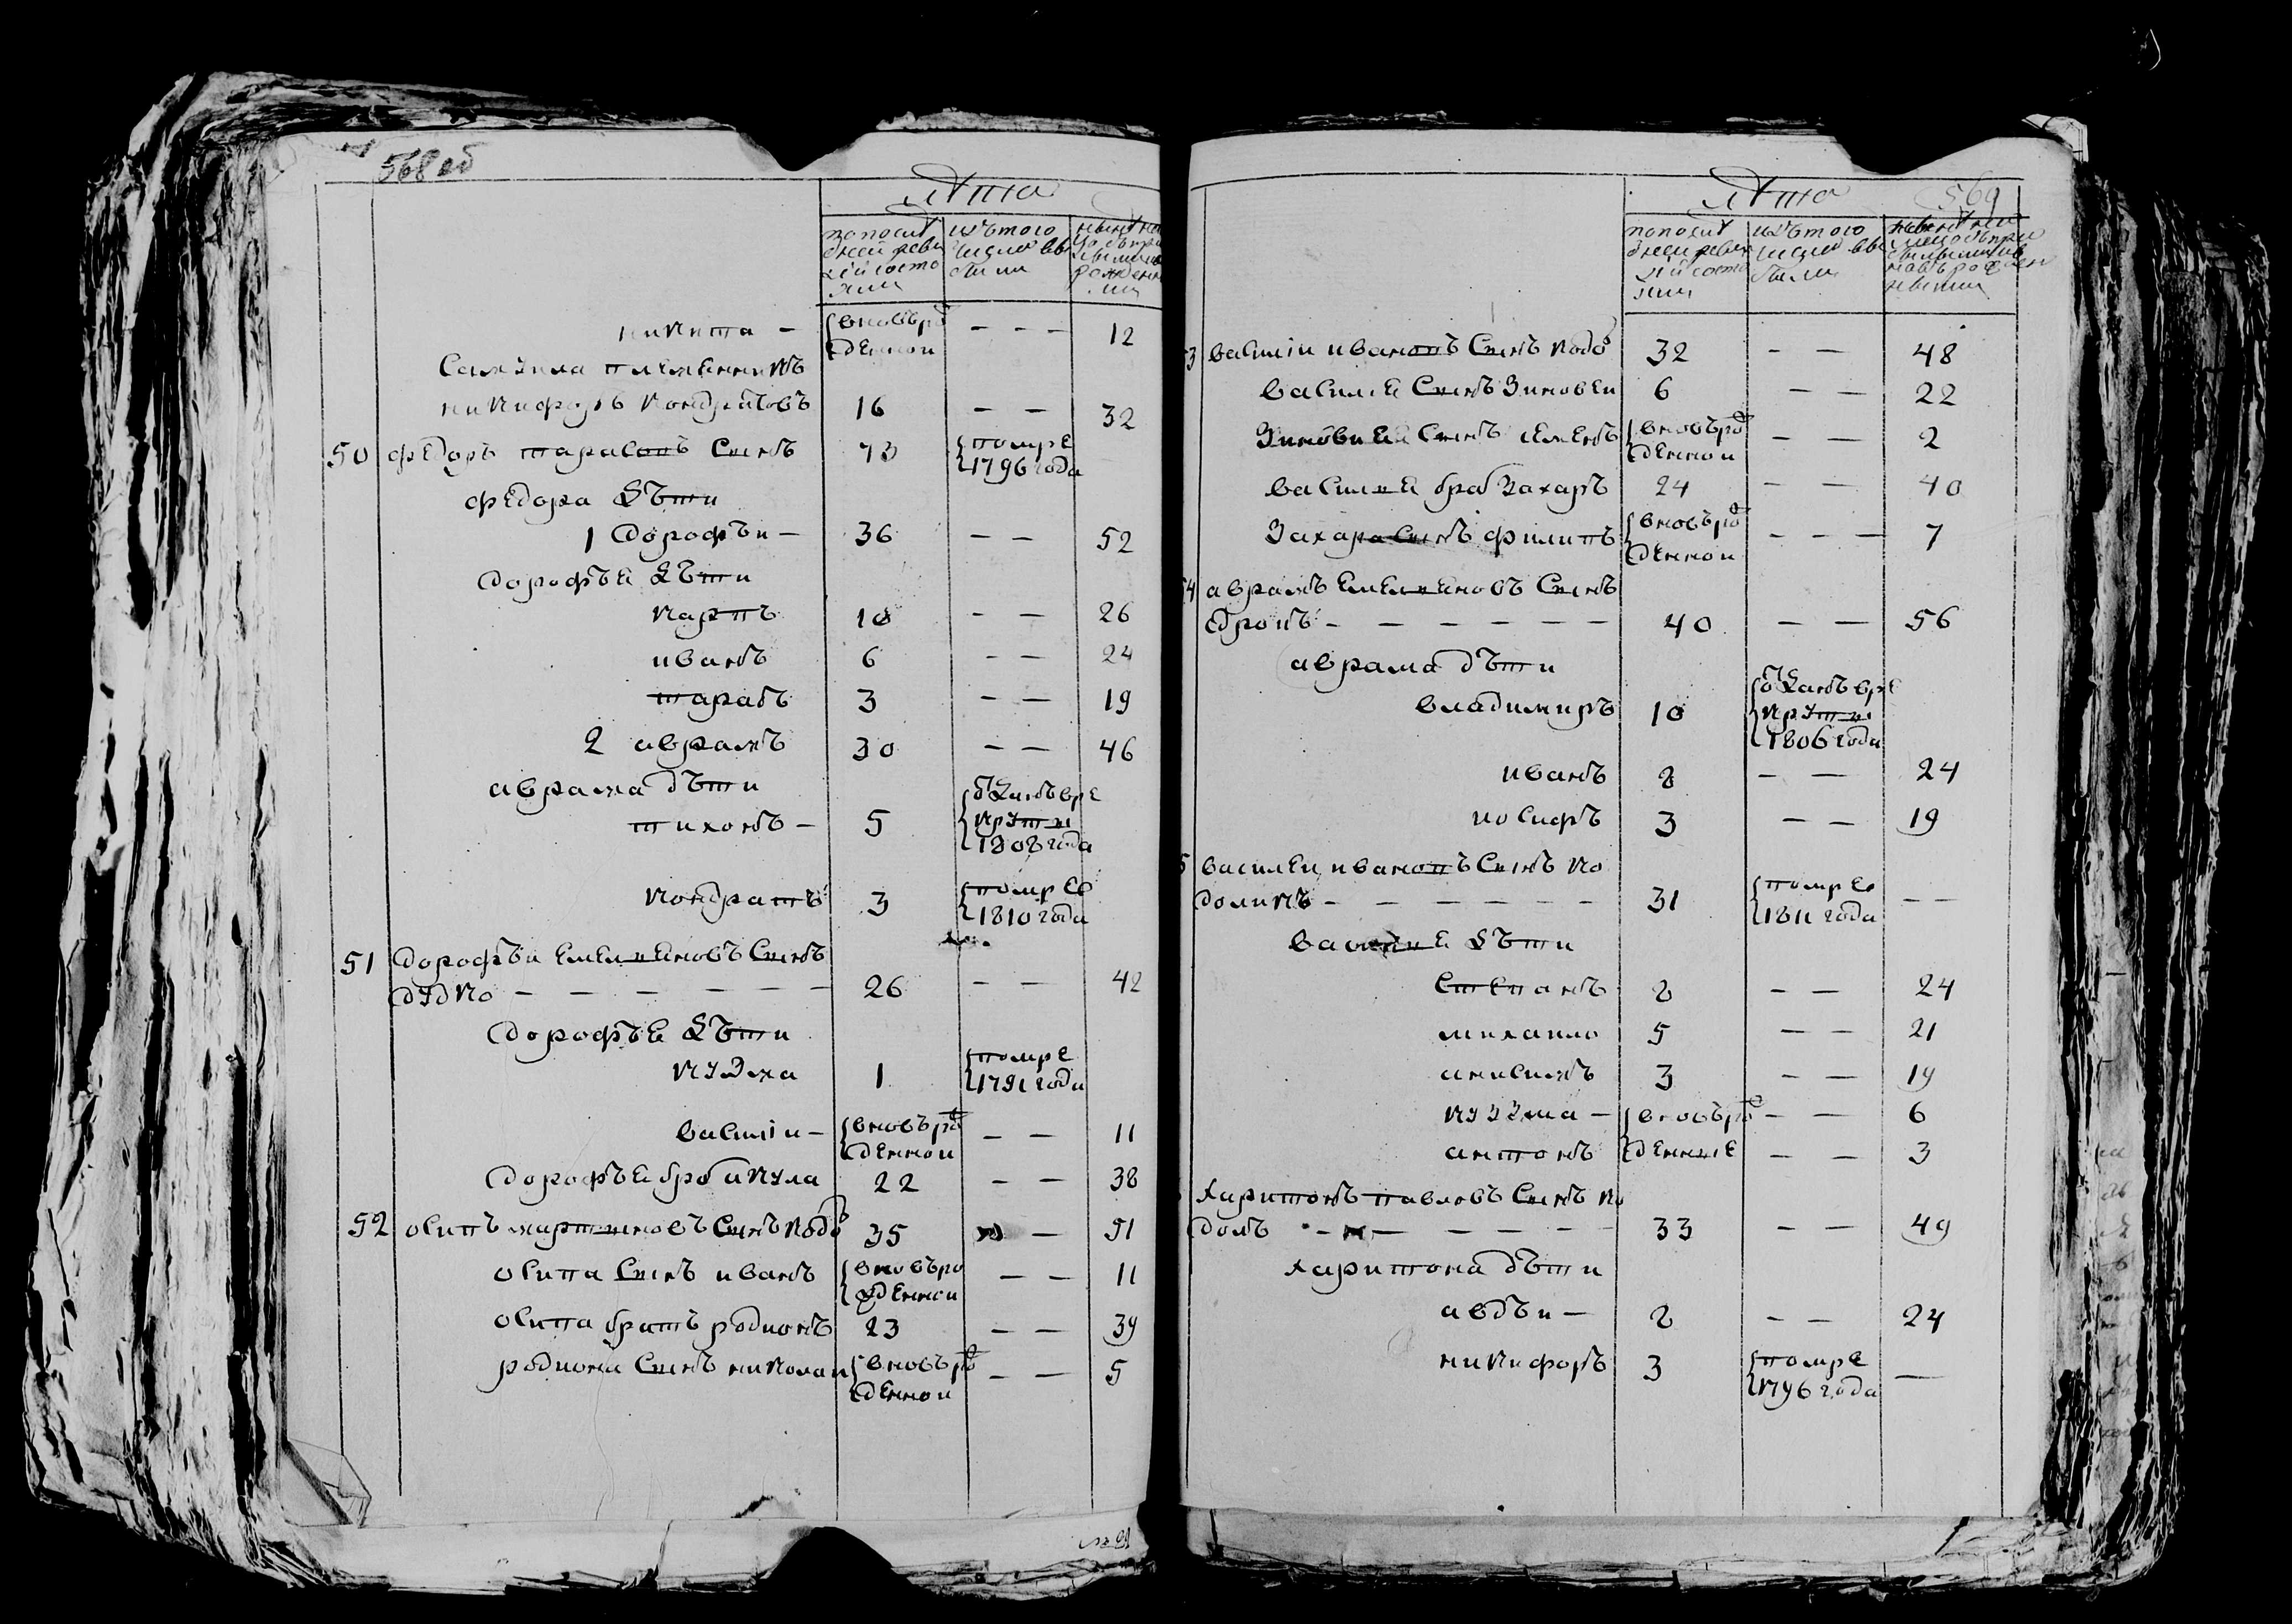 568 об
Лѣта
по послѣ
дней реви
зіи состо
яли
изъ того
числа вы
были
никита — вновь ро
жденной — — — 12
Самуила племянникъ
никифоръ Кондратовъ 16 — — 32
50 федоръ тарасовъ Сынъ 73 помре
1796 года
федора дѣти
1 дорофѣи — 36 — — 52
дорофѣе дѣти
карпъ 10 — — 26
иванъ 6 — — 24
тарасъ 3 — — 19
2 аврамъ 30 — — 46
аврама дѣти
тихонъ — 5 отданъ вре
круты
1808 года
кондратъ 3 помре
1810 года
51 дорофѣи емельяновъ Сынъ
дудко — — — — — — 26 — — 42
дорофѣе дѣти
кузма 1 помре
1791 года
василіи — вновь ро
жденнои — — 11
дорофѣе братъ акула 22 — — 38
52 осипъ мартыновъ Сынъ Подо 35 — 51
осипа Сынъ иванъ вновь ро
жденнои — — 11
осипа братъ родионъ 23 — — 39
родиона Сынъ николаи вновь ро
жденнои — — 5
569
Лѣта
по послѣ
дней реви
зіи состо
яли
изъ того
числа вы
были
3 василіи ивановъ Сынъ Подо 32 — — 48
василіе Сынъ Зиновеи 6 — — 22
Зиновиее Сынъ семенъ вновь ро
жденнои — — 2
василие братъ Захаръ 24 — — 40
Захара Сынъ филипъ вновь ро
жденнои — — — 7
4 аврамъ емельяновъ Сынъ
— — — — — — 40 — — 56
аврама дѣти
владимиръ 10 отданъ вре
круты
1806 года
иванъ 8 — — 24
иосифъ 3 — — 19
5 василеи ивановъ Сынъ По
долякъ — — — — — — 31 помре
1811 года — —
василие дѣти
степанъ 8 — — 24
михаило 5 — — 21
анисимъ 3 — — 19
кузма — вновь ро — — 6
антонъ жденные — — 3
харитонъ павловъ Сынъ По
долъ — — — — — — 33 — — 49
харитона дѣти
авдѣи — 8 — — 24
никифоръ 3 помре
1796 года —